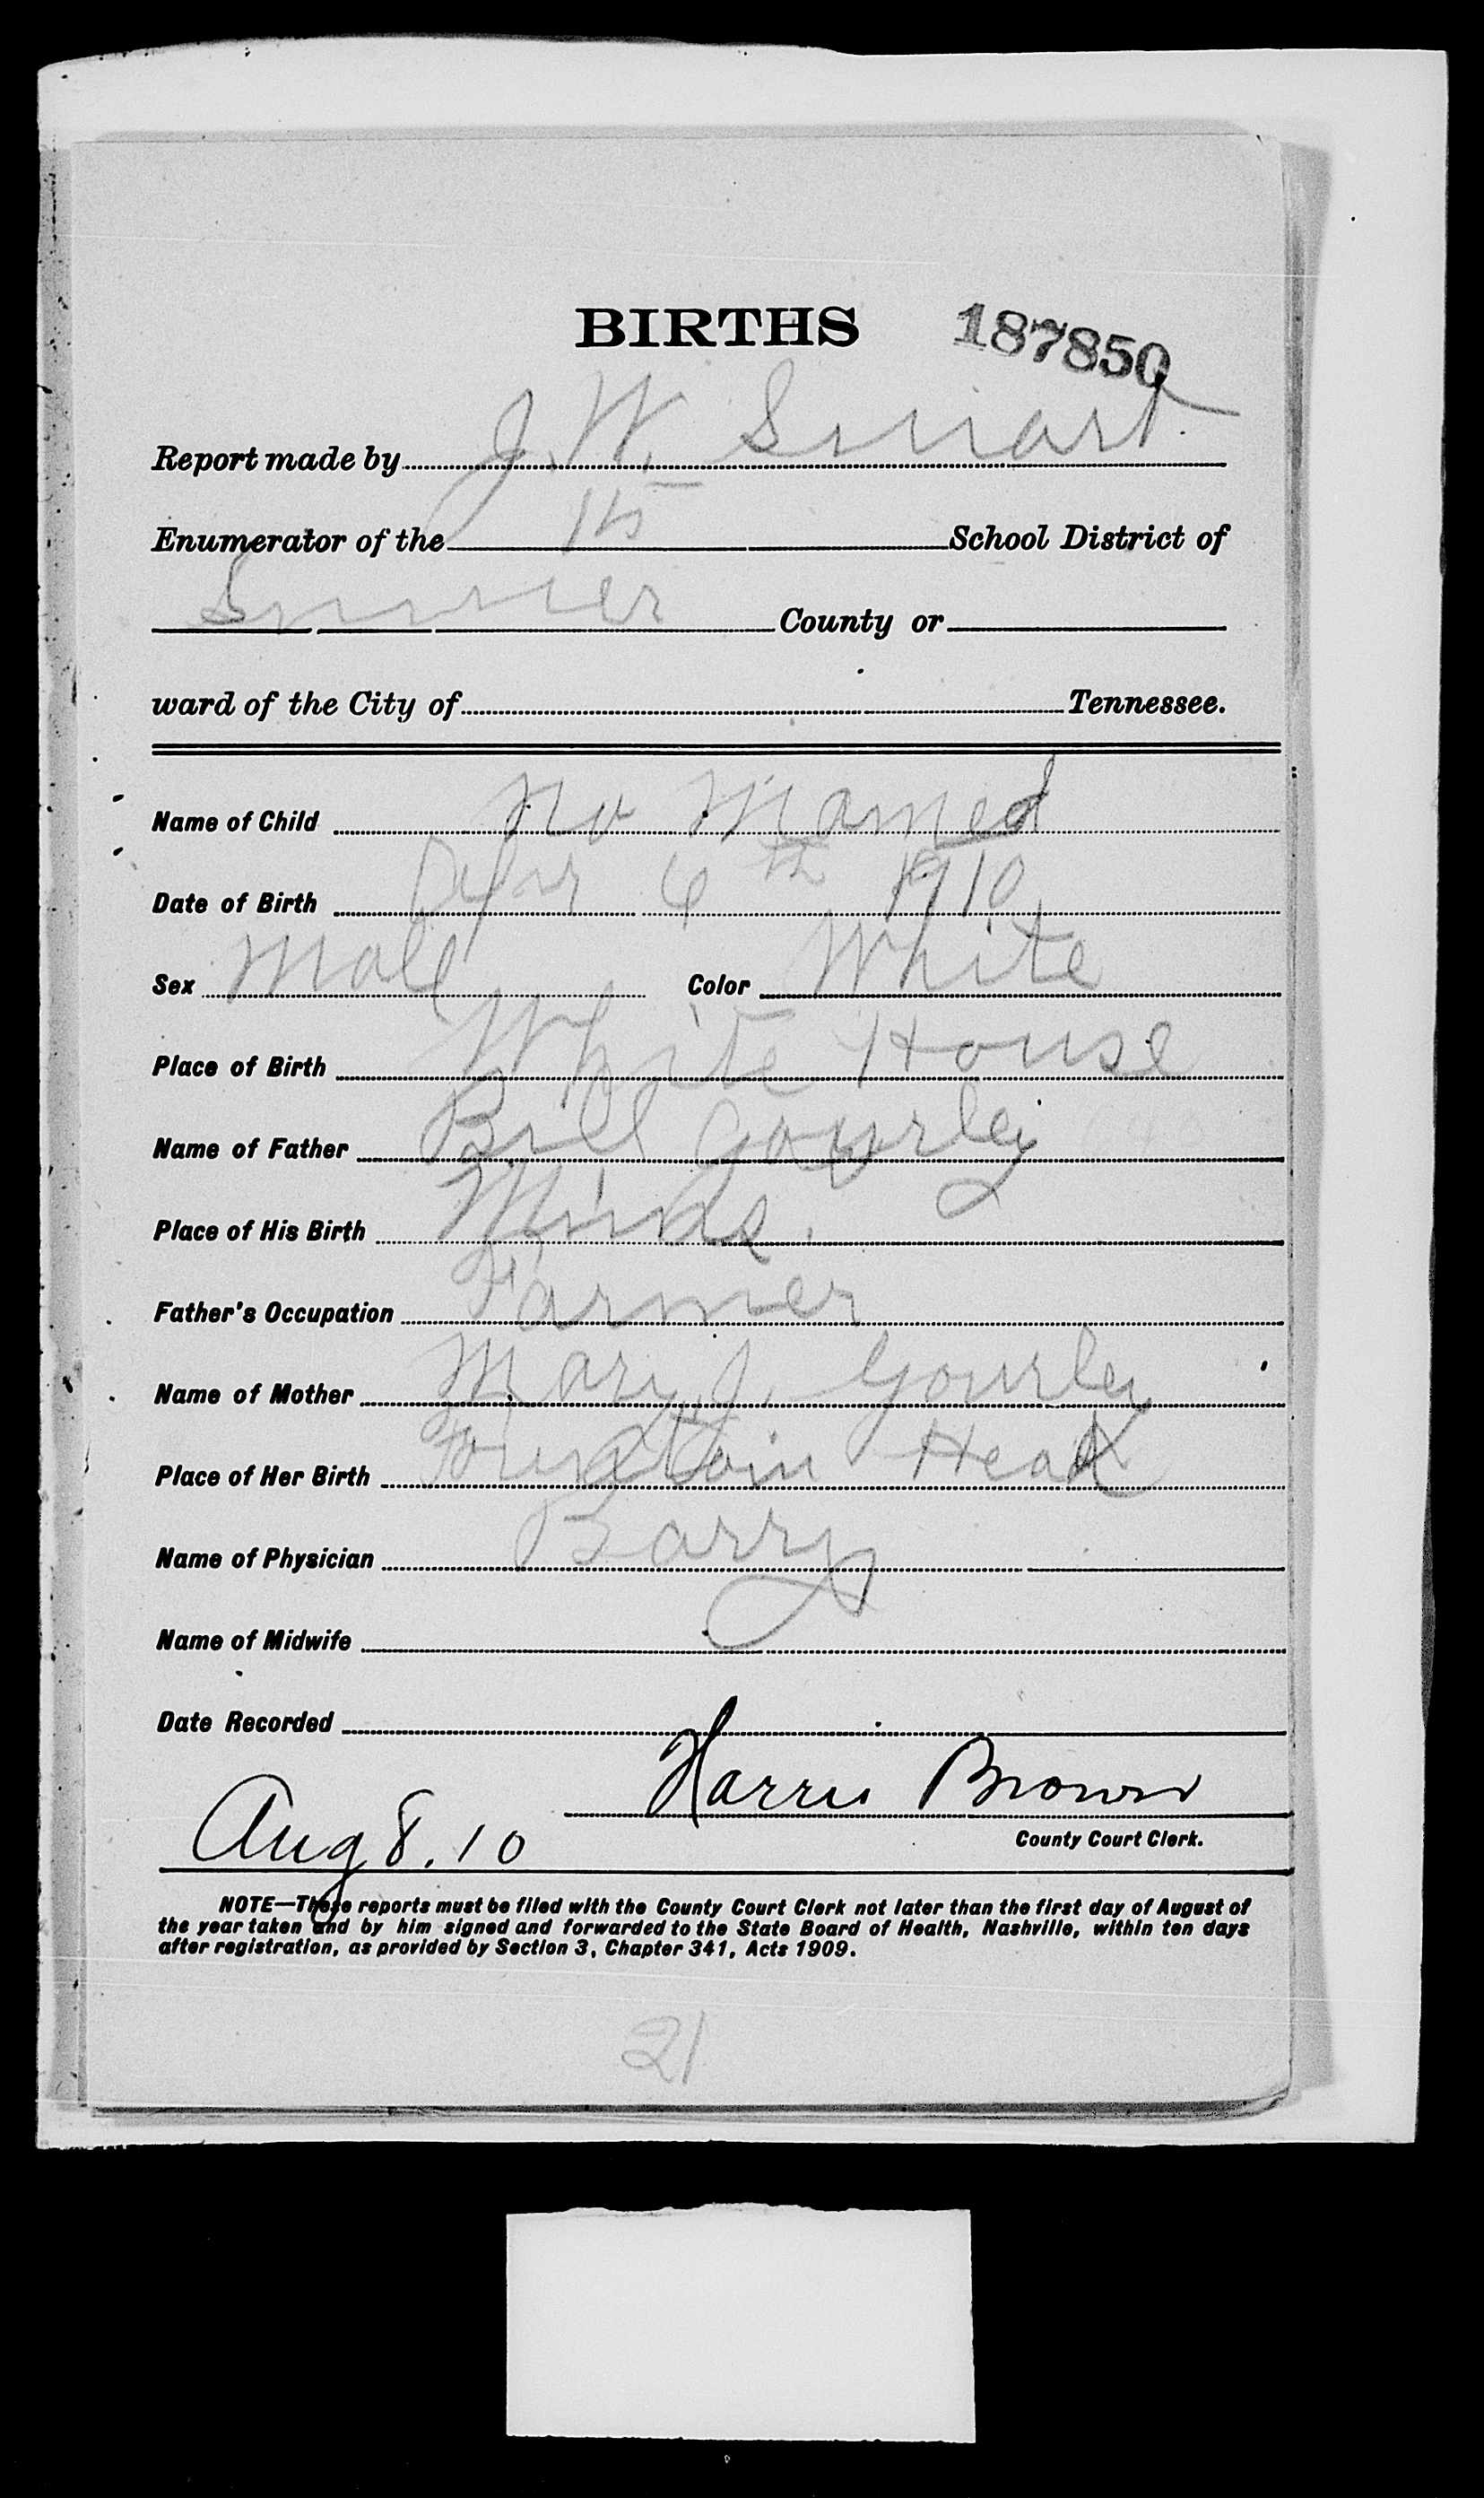 BIRTHS 187850
Report made by J. W. Smart.
Enumerator of the School District of
Sumner County or
ward of the City of Tennessee.
Name of Child No Mamed
Date of Birth Apr 6th 1910
Sex Male Color White
Place of Birth White House
Name of Father Bill Gourley
Place of His Birth
Father's Occupation Farmer
Name of Mother Mary J. Gourley
Place of Her Birth Fountain Head
Name of Physician Barry
Name of Midwife
Date Recorded
Harris Brown
Aug 8. 10
County Court Clerk.
NOTE—These reports must be filed with the County Court Clerk not later than the first day of August of
the year taken and by him signed and forwarded to the State Board of Health, Nashville, within ten days
after registration, as provided by Section 3, Chapter 341, Acts 1909.
21